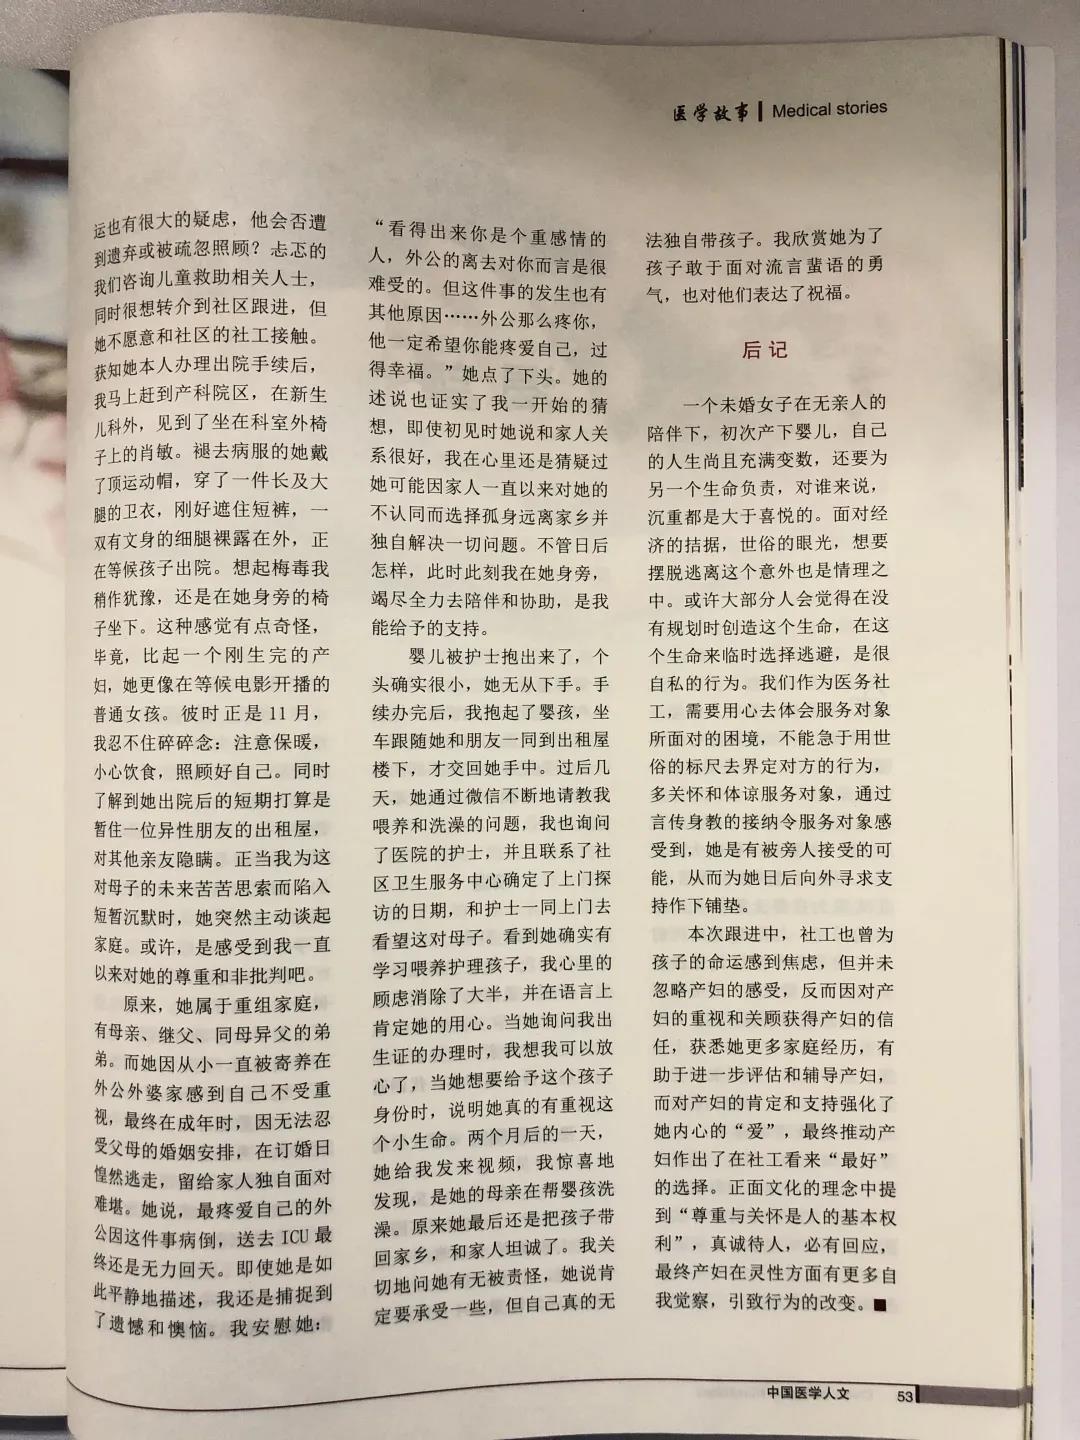 医学故事 | Medical stories
运也有很大的疑虑，他会否遭
到遗弃或被疏忽照顾？忐忑的
我们咨询儿童救助相关人士，
同时很想转介到社区跟进，但
她不愿意和社区的社工接触。
获知她本人办理出院手续后，
我马上赶到产科院区，在新生
儿科外，见到了坐在科室外椅
子上的肖敏。褪去病服的她戴
了顶运动帽，穿了一件长及大
腿的卫衣，刚好遮住短裤，一
双有文身的细腿裸露在外，正
在等候孩子出院。想起梅毒我
稍作犹豫，还是在她身旁的椅
子坐下。这种感觉有点奇怪，
毕竟，比起一个刚生完的产
妇，她更像在等候电影开播的
普通女孩。彼时正是 11 月，
我忍不住碎碎念：注意保暖，
小心饮食，照顾好自己。同时
了解到她出院后的短期打算是
暂住一位异性朋友的出租屋，
对其他亲友隐瞒。正当我为这
对母子的未来苦苦思索而陷入
短暂沉默时，她突然主动谈起
家庭。或许，是感受到我一直
以来对她的尊重和非批判吧。
原来，她属于重组家庭，
有母亲、继父、同母异父的弟
弟。而她因从小一直被寄养在
外公外婆家感到自己不受重
视，最终在成年时，因无法忍
受父母的婚姻安排，在订婚日
惶然逃走，留给家人独自面对
难堪。她说，最疼爱自己的外
公因这件事病倒，送去 ICU 最
终还是无力回天。即使她是如
此平静地描述，我还是捕捉到
了遗憾和懊恼。我安慰她：
“看得出来你是个重感情的
人，外公的离去对你而言是很
难受的。但这件事的发生也有
其他原因……外公那么疼你，
他一定希望你能疼爱自己，过
得幸福。”她点了下头。她的
述说也证实了我一开始的猜
想，即使初见时她说和家人关
系很好，我在心里还是猜疑过
她可能因家人一直以来对她的
不认同而选择孤身远离家乡并
独自解决一切问题。不管日后
怎样，此时此刻我在她身旁，
竭尽全力去陪伴和协助，是我
能给予的支持。
婴儿被护士抱出来了，个
头确实很小，她无从下手。手
续办完后，我抱起了婴孩，坐
车跟随她和朋友一同到出租屋
楼下，才交回她手中。过后几
天，她通过微信不断地请教我
喂养和洗澡的问题，我也询问
了医院的护士，并且联系了社
区卫生服务中心确定了上门探
访的日期，和护士一同上门去
看望这对母子。看到她确实有
学习喂养护理孩子，我心里的
顾虑消除了大半，并在语言上
肯定她的用心。当她询问我出
生证的办理时，我想我可以放
心了，当她想要给予这个孩子
身份时，说明她真的有重视这
个小生命。两个月后的一天，
她给我发来视频，我惊喜地
发现，是她的母亲在帮婴孩洗
澡。原来她最后还是把孩子带
回家乡，和家人坦诚了。我关
切地问她有无被责怪，她说肯
定要承受一些，但自己真的无
法独自带孩子。我欣赏她为了
孩子敢于面对流言蜚语的勇
气，也对他们表达了祝福。
后记
一个未婚女子在无亲人的
陪伴下，初次产下婴儿，自己
的人生尚且充满变数，还要为
另一个生命负责，对谁来说，
沉重都是大于喜悦的。面对经
济的拮据，世俗的眼光，想要
摆脱逃离这个意外也是情理之
中。或许大部分人会觉得在没
有规划时创造这个生命，在这
个生命来临时选择逃避，是很
自私的行为。我们作为医务社
工，需要用心去体会服务对象
所面对的困境，不能急于用世
俗的标尺去界定对方的行为，
多关怀和体谅服务对象，通过
言传身教的接纳令服务对象感
受到，她是有被旁人接受的可
能，从而为她日后向外寻求支
持作下铺垫。
本次跟进中，社工也曾为
孩子的命运感到焦虑，但并未
忽略产妇的感受，反而因对产
妇的重视和关顾获得产妇的信
任，获悉她更多家庭经历，有
助于进一步评估和辅导产妇，
而对产妇的肯定和支持强化了
她内心的“爱”，最终推动产
妇作出了在社工看来“最好”
的选择。正面文化的理念中提
到“尊重与关怀是人的基本权
利”，真诚待人，必有回应，
最终产妇在灵性方面有更多自
我觉察，引致行为的改变。■
中国医学人文 53